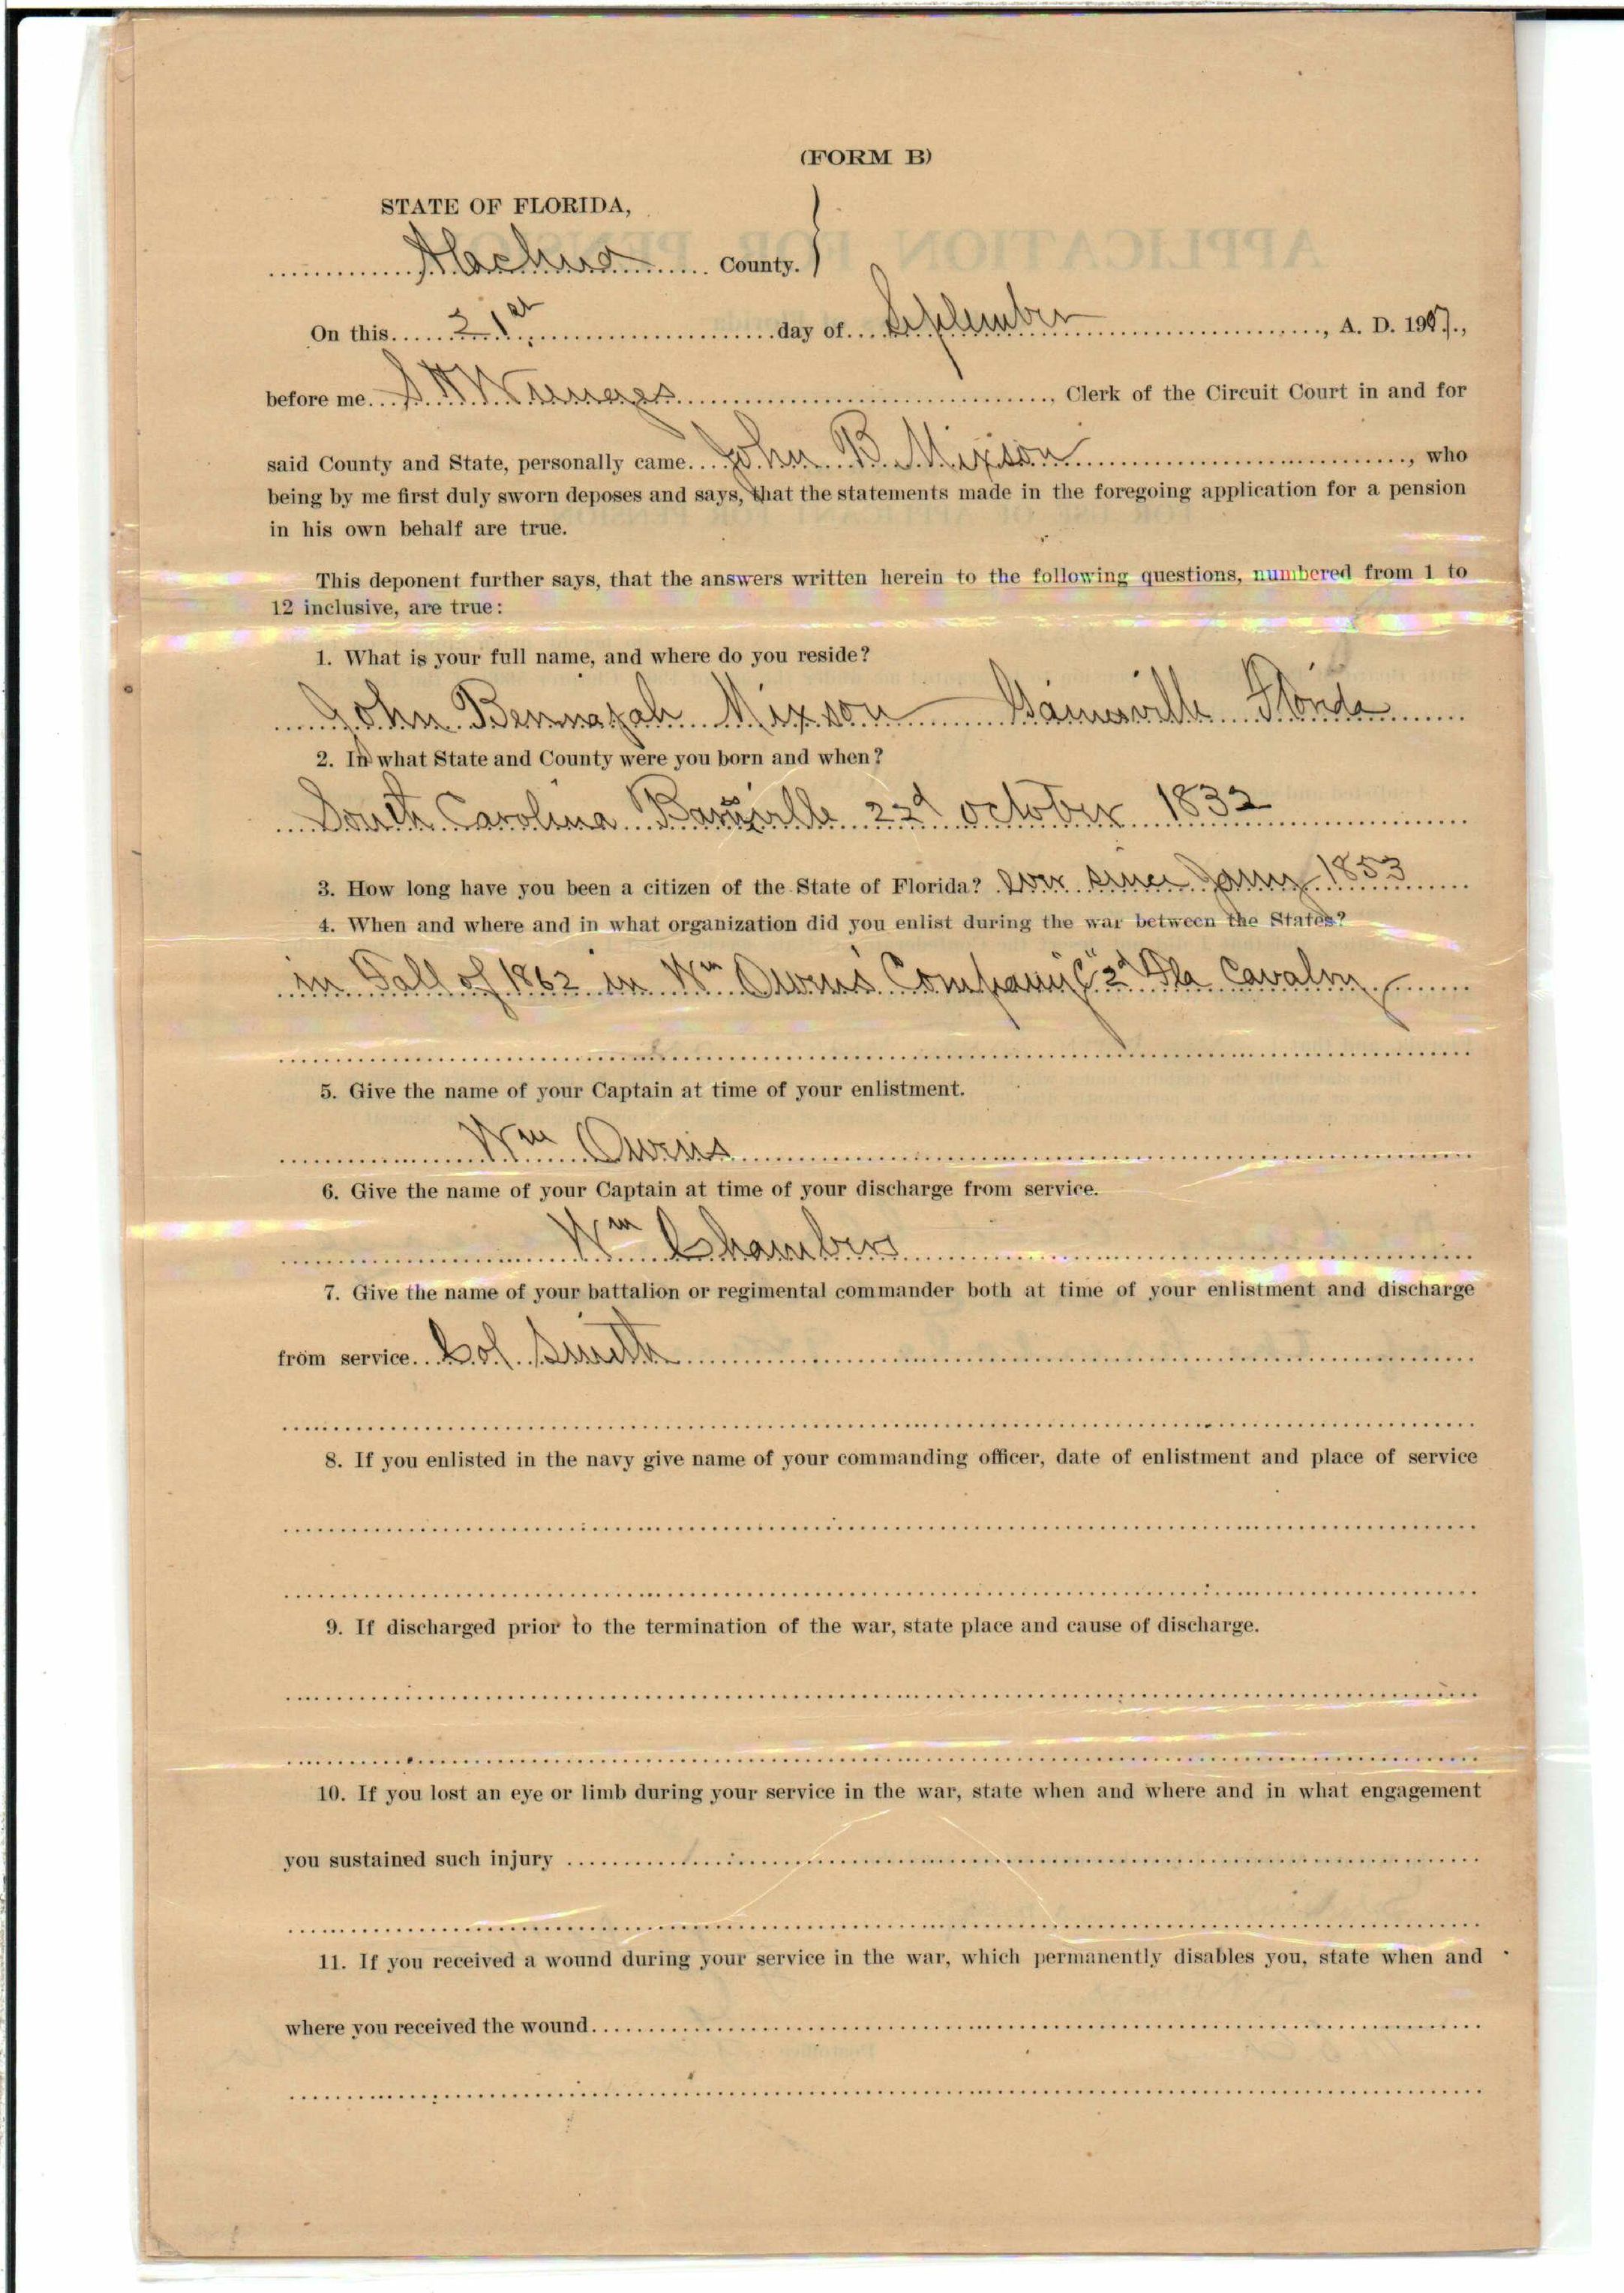 (FORM B)
STATE OF FLORIDA,
Alachua County.
On this 21st day of September, A. D. 1907.,
before me S H Wienges, Clerk of the Circuit Court in and for
said County and State, personally came John B. Mixson, who
being by me first duly sworn deposes and says, that the statements made in the foregoing application for a pension
in his own behalf are true.
This deponent further says, that the answers written herein to the following questions, numbered from 1 to
12 inclusive, are true:
1. What is your full name, and where do you reside?
John Bennajah Mixson Gainesville Florida
2. In what State and County were you born and when?
South Carolina 22d October 1832
3. How long have you been a citizen of the State of Florida? Ever since Jany 1853
4. When and where and in what organization did you enlist during the war between the States?
in Fall of 1862 in Wm Owens Company "C" 2d Fla Cavalry
5. Give the name of your Captain at time of your enlistment.
Wm Owens
6. Give the name of your Captain at time of your discharge from service.
Wm Chambers
7. Give the name of your battalion or regimental commander both at time of your enlistment and discharge
from service. Col. Smith
8. If you enlisted in the navy give name of your commanding officer, date of enlistment and place of service
9. If discharged prior to the termination of the war, state place and cause of discharge.
10. If you lost an eye or limb during your service in the war, state when and where and in what engagement
you sustained such injury
11. If you received a wound during your service in the war, which permanently disables you, state when and
where you received the wound.